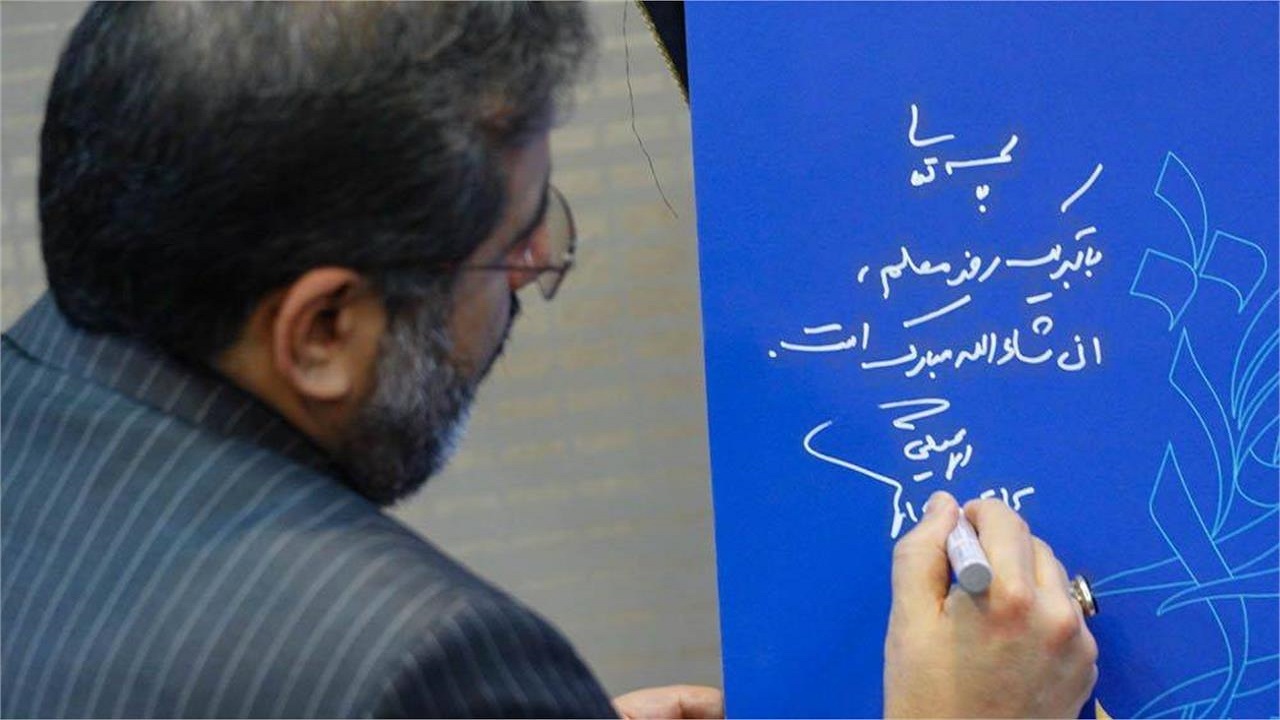 بسمه تعالی
با تبریک روز معلم،
ان شاءالله مبارک است.
اسمعیلی